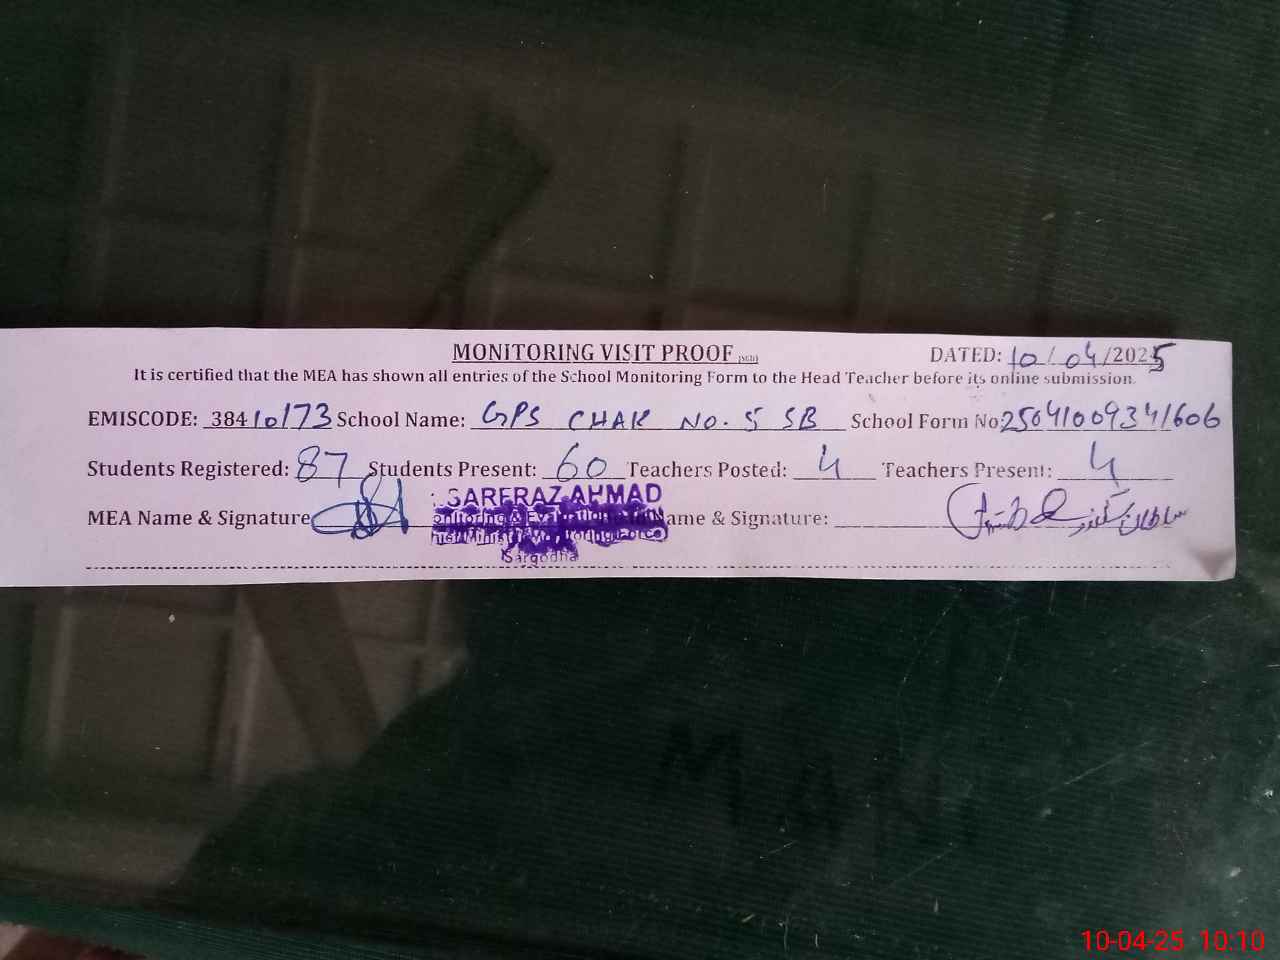 MONITORING VISIT PROOF (SGD) DATED: 10/04/2025
It is certified that the MEA has shown all entries of the School Monitoring Form to the Head Teacher before its online submission.
EMISCODE: 38410173 School Name: GPS CHAK NO. 5 SB School Form No: 25041009341606
Students Registered: 87 Students Present: 60 Teachers Posted: 4 Teachers Present: 4
SARFRAZ AHMAD
MEA Name & Signature Name & Signature: سلطان سکندر
Sargodha
M
10-04-25 10:10